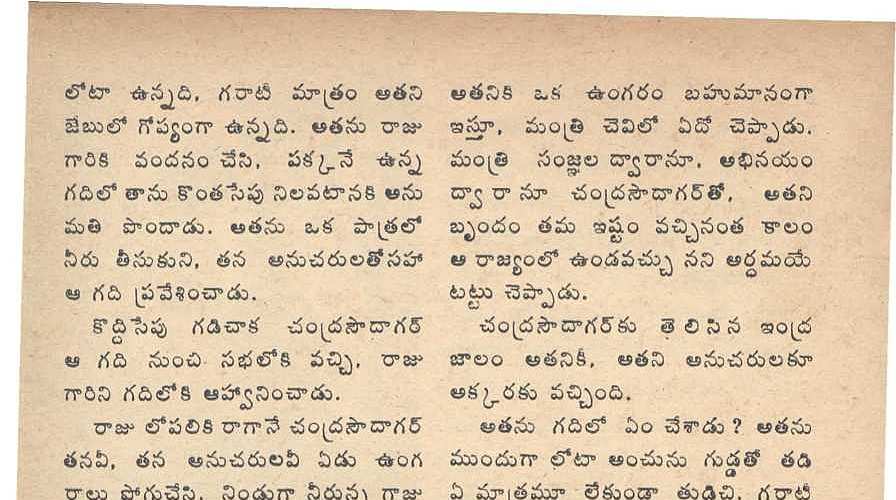 లోటా ఉన్నది, గరాటీ మాత్రం అతని
జేబులో గోప్యంగా ఉన్నది. అతను రాజు
గారికి వందనం చేసి, పక్కనే ఉన్న
గదిలో తాను కొంతసేపు నిలవటానకి అను
మతి పొందాడు. అతను ఒక పాత్రలో
నీరు తీసుకుని, తన అనుచరులతోసహా
ఆ గది ప్రవేశించాడు.
కొద్దిసేపు గడిచాక చంద్రసౌదాగర్
ఆ గది నుంచి సభలోకి వచ్చి, రాజు
గారిని గదిలోకి ఆహ్వానించాడు.
రాజు లోపలికి రాగానే చంద్రసౌదాగర్
తనవీ, తన అనుచరులవీ ఏడు ఉంగ
రాలు పోగుచేసి, నిండుగా నీరున్న గాజు
అతనికి ఒక ఉంగరం బహుమానంగా
ఇస్తూ, మంత్రి చెవిలో ఏదో చెప్పాడు.
మంత్రి సంజ్ఞల ద్వారానూ, అభినయం
ద్వారానూ చంద్రసౌదాగర్‌తో, అతని
బృందం తమ ఇష్టం వచ్చినంత కాలం
ఆ రాజ్యంలో ఉండవచ్చు నని అర్ధమయే
టట్టు చెప్పాడు.
చంద్రసౌదాగర్‌కు తెలిసిన ఇంద్ర
జాలం అతనికీ, అతని అనుచరులకూ
అక్కరకు వచ్చింది.
అతను గదిలో ఏం చేశాడు? అతను
ముందుగా లోటా అంచును గుడ్డతో తడి
ఏ మాత్రమూ లేకుండా తుడిచి, గరాటీ